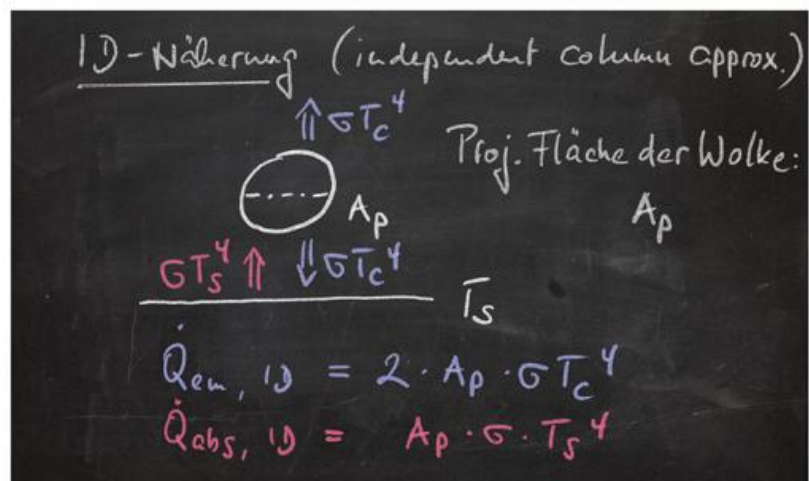 1D-Näherung (independent column approx.)
⇑ σT_c⁴
Proj. Fläche der Wolke:
A_p
A_p
σT_s⁴ ⇑ ⇓ σT_c⁴
T_s
Q̇_em, 1D = 2 · A_p · σ T_c⁴
Q̇_abs, 1D = A_p · σ · T_s⁴